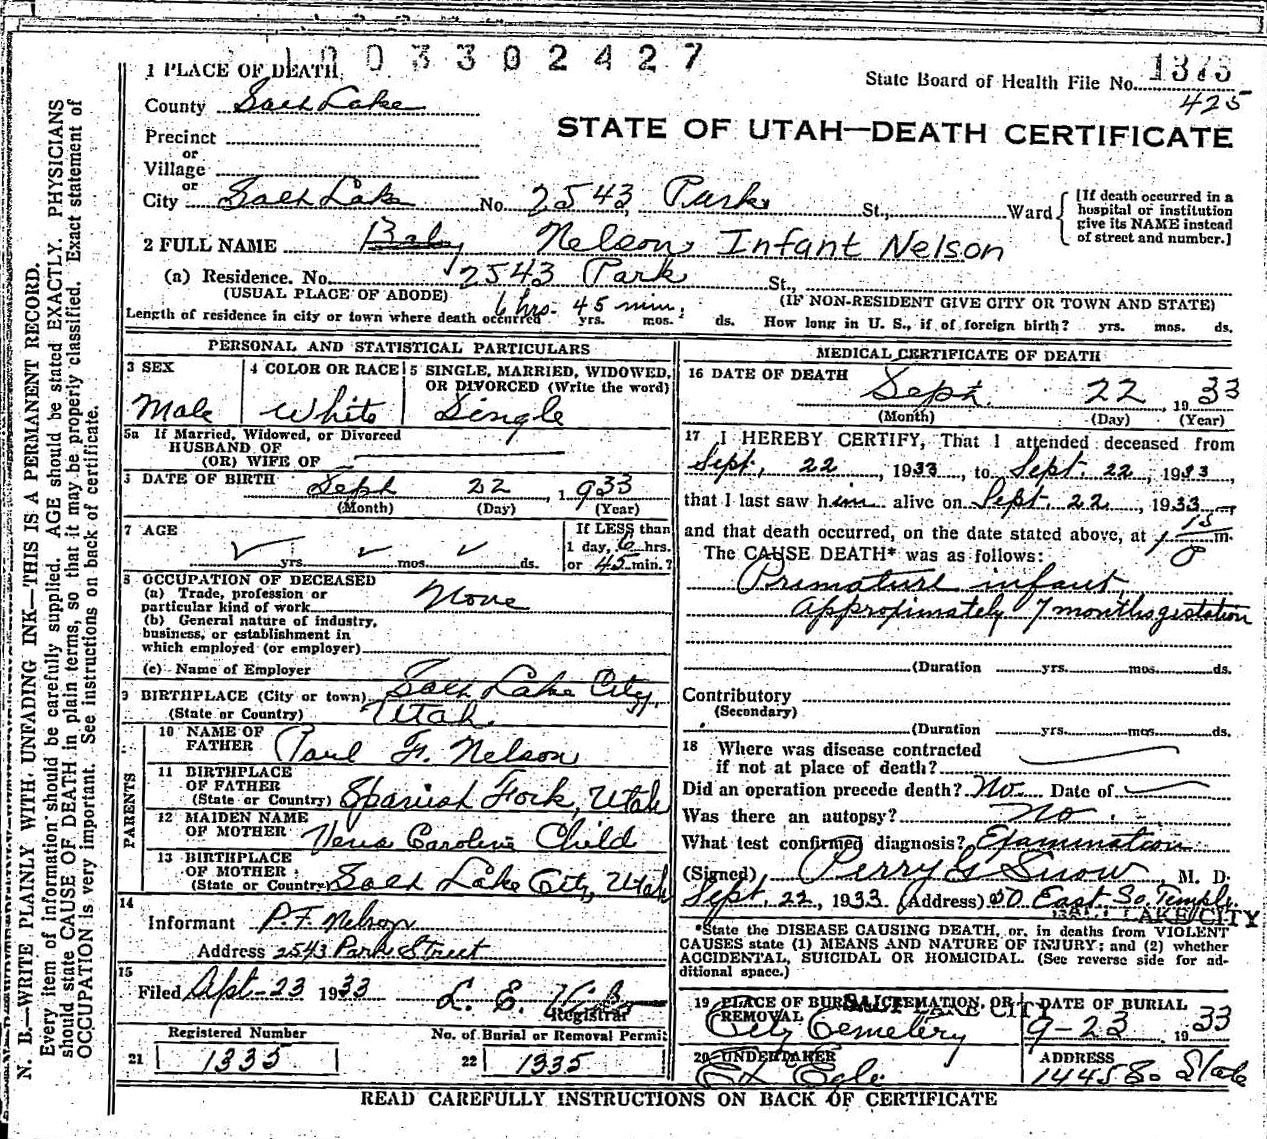 1003302427
1 PLACE OF DEATH
State Board of Health File No. 1375
425
County Salt Lake
STATE OF UTAH—DEATH CERTIFICATE
Precinct
or
Village
or
City Salt Lake No. 2543 Park St., Ward
[If death occurred in a hospital or institution give its NAME instead of street and number.]
2 FULL NAME Baby Nelson Infant Nelson
(a) Residence. No. 2543 Park St.,
(USUAL PLACE OF ABODE) (IF NON-RESIDENT GIVE CITY OR TOWN AND STATE)
Length of residence in city or town where death occurred 6 hrs. 45 min. yrs. mos. ds. How long in U. S., if of foreign birth? yrs. mos. ds.
PERSONAL AND STATISTICAL PARTICULARS
3 SEX 4 COLOR OR RACE 5 SINGLE, MARRIED, WIDOWED, OR DIVORCED (Write the word)
Male White Single
5a If Married, Widowed, or Divorced
HUSBAND OF
(OR) WIFE OF
DATE OF BIRTH Sept 22, 1933
(Month) (Day) (Year)
7 AGE
yrs. mos. ds.
If LESS than
1 day, 6 hrs.
or 45 min.?
8 OCCUPATION OF DECEASED
(a) Trade, profession or
particular kind of work None
(b) General nature of industry,
business, or establishment in
which employed (or employer)
(c) Name of Employer
9 BIRTHPLACE (City or town) Salt Lake City,
(State or Country) Utah.
PARENTS
10 NAME OF
FATHER Paul F. Nelson
11 BIRTHPLACE
OF FATHER
(State or Country) Spanish Fork, Utah
12 MAIDEN NAME
OF MOTHER Caroline Child
13 BIRTHPLACE
OF MOTHER
(State or Country) Salt Lake City, Utah
14
Informant P. F. Nelson
Address 2543 Park Street
15
Filed Sept-23 1933 L. E.
Registrar
Registered Number No. of Burial or Removal Permit
21 1335 22 1335
MEDICAL CERTIFICATE OF DEATH
16 DATE OF DEATH Sept. 22, 1933
(Month) (Day) (Year)
17 I HEREBY CERTIFY, That I attended deceased from
Sept. 22, 1933, to Sept. 22, 1933,
that I last saw him alive on Sept. 22, 1933
and that death occurred, on the date stated above, at m.
The CAUSE DEATH* was as follows:
Premature infant
Approximately 7 months gestation
(Duration yrs. mos. ds.
Contributory
(Secondary)
(Duration yrs. mos. ds.
18 Where was disease contracted
if not at place of death?
Did an operation precede death? No. Date of
Was there an autopsy? No.
What test confirmed diagnosis? Examination
(Signed) Perry G Snow, M. D.
Sept. 22, 1933 (Address) 50 East So. Temple
SALT LAKE CITY
*State the DISEASE CAUSING DEATH, or, in deaths from VIOLENT
CAUSES state (1) MEANS AND NATURE OF INJURY; and (2) whether
ACCIDENTAL, SUICIDAL OR HOMICIDAL. (See reverse side for ad-
ditional space.)
19 PLACE OF BURIAL, CREMATION, OR REMOVAL DATE OF BURIAL
SALT LAKE CITY
City Cemetery 9-23 1933
20 UNDERTAKER ADDRESS
1445 So State
READ CAREFULLY INSTRUCTIONS ON BACK OF CERTIFICATE
N. B.—WRITE PLAINLY WITH UNFADING INK—THIS IS A PERMANENT RECORD.
Every item of information should be carefully supplied. AGE should be stated EXACTLY. PHYSICIANS
should state CAUSE OF DEATH in plain terms, so that it may be properly classified. Exact statement of
OCCUPATION is very important. See instructions on back of certificate.